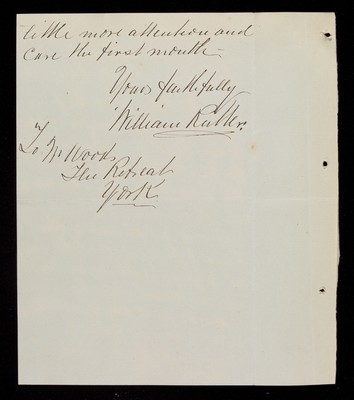 little more attention and
care the first month—
Yours faithfully
William
To Mr Woods
The Retreat
York